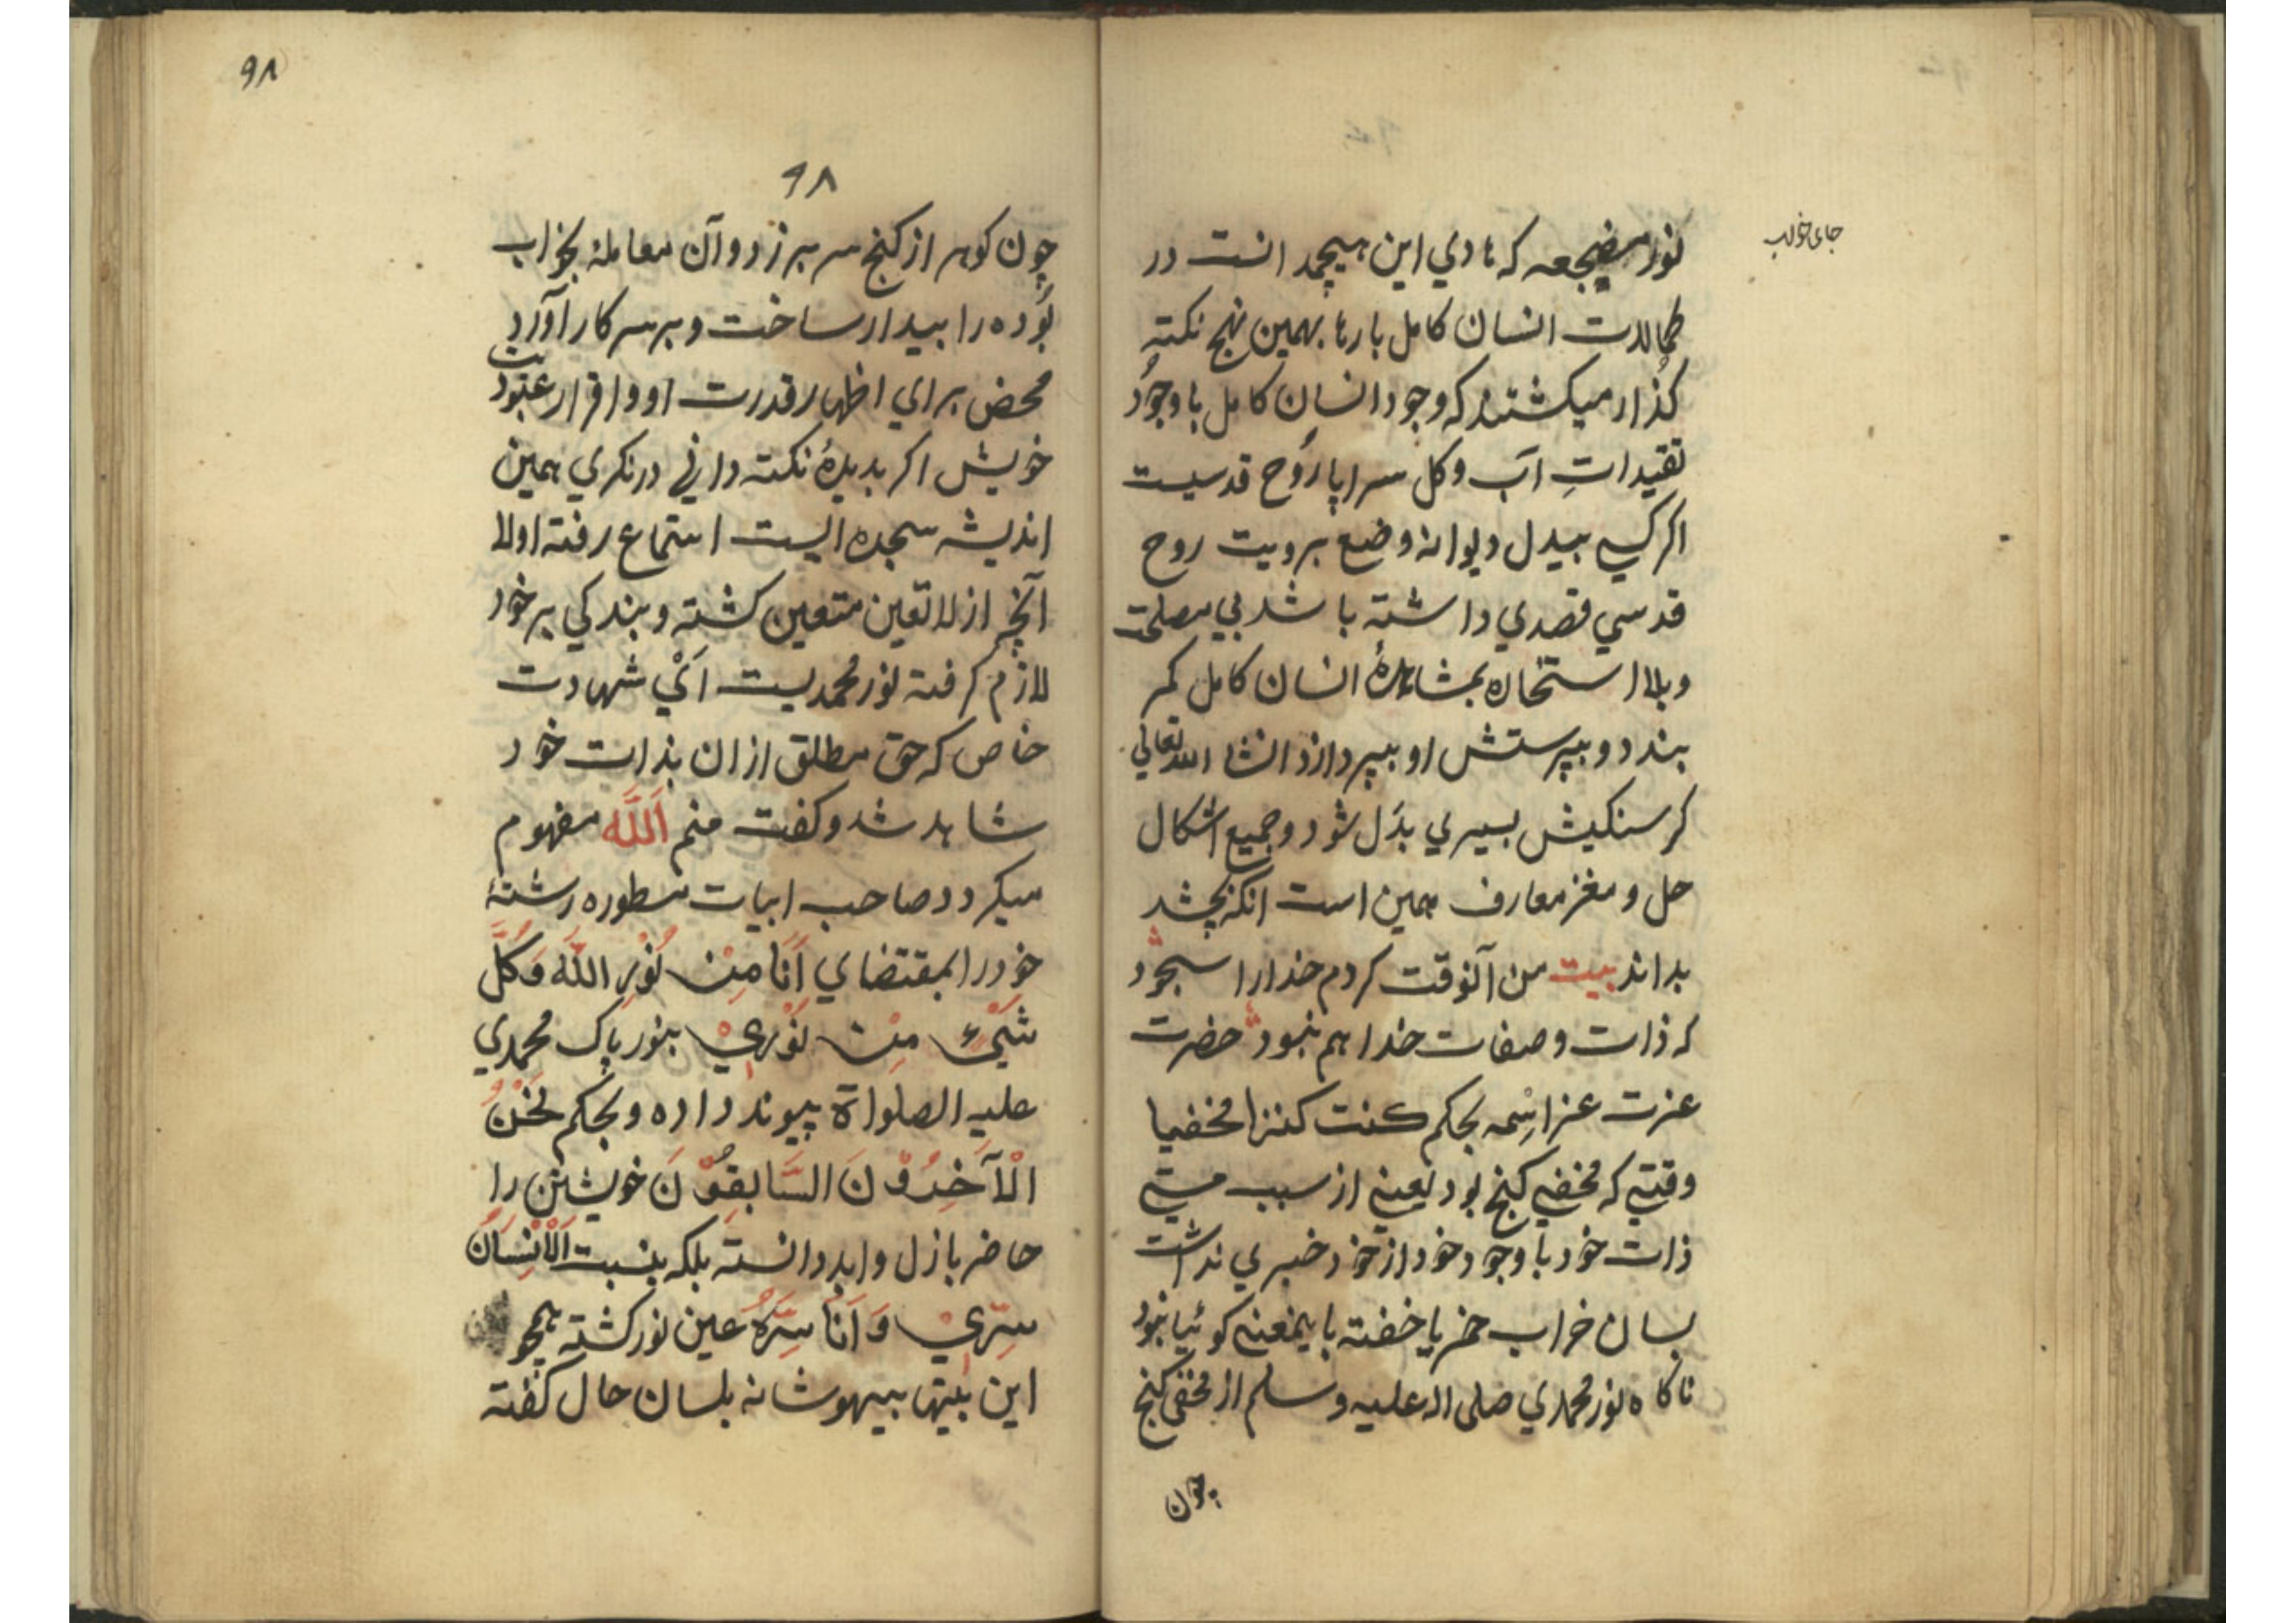 جای خواب
نور مضجعه که هادي اين هيچمد انست در
کمالات انسان کامل بارها بهمين نهج نکته
کذار ميکشتند که وجود انسان کامل با وجود
تقيدات آب وکل سراپا روح قدسيست
اکر کسي بيدل ديوانه وضع برويت روح
قدسي قصدي داشته باشد بي مصلحت
وبلا استخاره بمشاهدهٔ انسان کامل کمر
بندد و بپرستش او بپردازد انشا الله تعالي
کرسنکيش بسيري بدل شود وجميع اشکال
حل و مغز معارف همين است انکه بچشد
بداند بيت من آنوقت کردم خدارا سجود
که ذات وصفات خدا هم نبود حضرت
عزت عز اسمه بحکم کنت کنزا مخفيا
وقتي که مخفي کنج بود يعني از سبب مستي
ذات خود با وجود خود از خود خبري نداشت
بسان خراب خمر يا خفته باينمعني کوئيا نبود
ناکاه نور محمدي صلی اله عليه وسلم از مخفی کنج
چون
۹۸
۹۸
چون کوهر از کنج سر برزد وآن معاملهٔ بخواب
بوده را بيدار ساخت وبر سر کار آورد
محض براي اظهار قدرت او واقرار عبوديت
خويش اکر بديدهٔ نکته داني درنکري همين
انديشه سجده اليست استماع رفته اولا
آنچه از لا تعين متعين کشته و بندکي بر خود
لازم کرفته نور محمديست اَيْ شهادت
خاص که حق مطلق ازان بذات خود
شاهد شد وکفت منم اَللّه مفهوم
ميکردد صاحب ابيات مسطوره رشتهٔ
خودرا بمقتضاي اَنَا مِنْ نُوْرِ اللّه وَکُلُّ
شَيْءٍ مِنْ نُوْرِيْ بنور پاک محمدي
عليه الصلواة پيوند داده وبحکم نَحْنُ
الْآخِرُوْنَ السَّابِقُوْنَ خويشتن را
حاضر بازل وابد دانسته بلکه بنسبت اَلْاِنْسَانُ
سِرِّيْ وَ اَنَا سِرُّهُ عين نور کشته همچو
اين بيتها بيهوشانه بلسان حال کفته